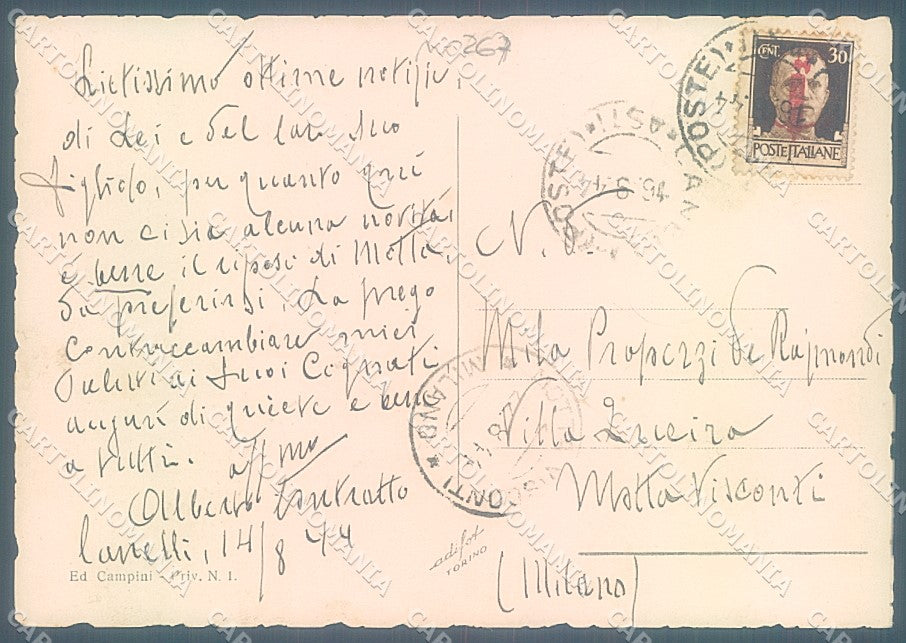 267
Lietissimo ottime notizie
di Lei e del caro Suo
figliolo, per quanto qui
non ci sia alcuna novità,
è bene il riposo di Motta
da preferirsi. La prego
contraccambiare miei
saluti ai Suoi Cognati
auguri di quiete e bene
a tutti. aff.mo
Alberto Contratto
Canelli, 14/8 44
Ed Campini - Priv. N. 1.
adifot
TORINO
CENT. 30
POSTE ITALIANE
(POSTE)
ASTI
(POSTE)
MILANO
N. D.
Mila Properzj de Raimondi
Villa Lucira
Motta Visconti
(Milano)
CARTOLINOMANIA